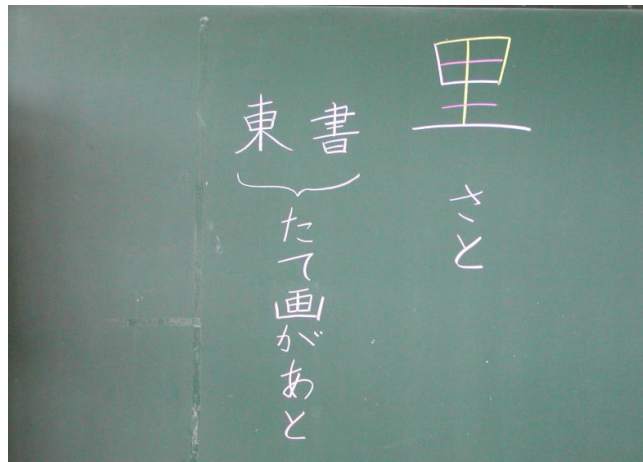 里
さと
書
東
たて画があと